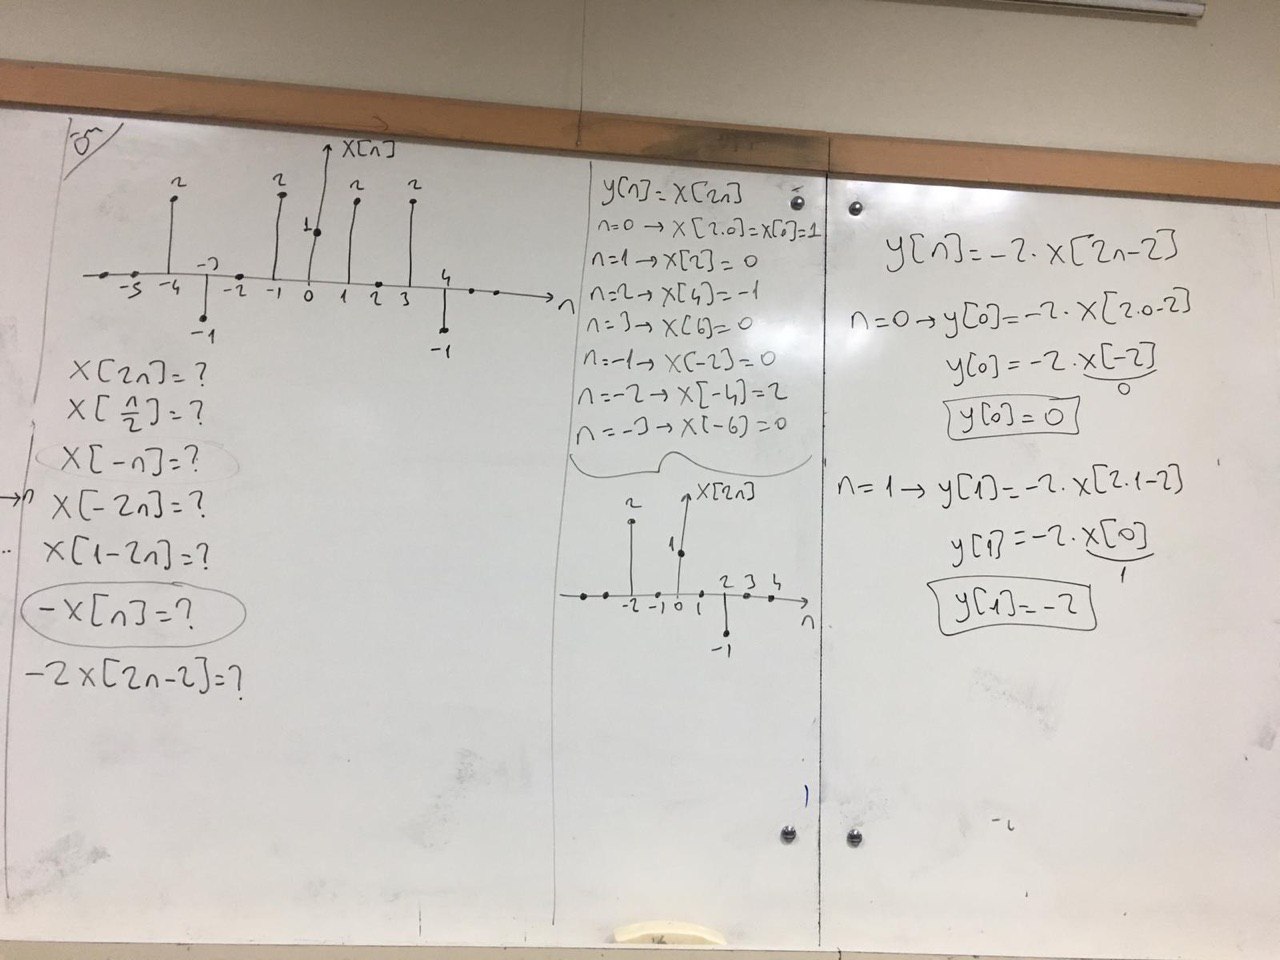 ör
x[n]
2 2 2 2
1
-3 4
-5 -4 -2 -1 0 1 2 3 n
-1 -1
x[2n]=?
x[n/2]=?
x[-n]=?
→n x[-2n]=?
x[1-2n]=?
-x[n]=?
-2x[2n-2]=?
y[n]=x[2n]
n=0 → x[2.0]=x[0]=1
n=1 → x[2]=0
n=2 → x[4]=-1
n=3 → x[6]=0
n=-1 → x[-2]=0
n=-2 → x[-4]=2
n=-3 → x[-6]=0
x[2n]
2
1
2 3 4
-2 -1 0 1 n
-1
y[n]=-2. x[2n-2]
n=0 → y[0]=-2. x[2.0-2]
y[0]=-2. x[-2]
0
y[0]=0
n=1 → y[1]=-2. x[2.1-2]
y[1]=-2. x[0]
1
y[1]=-2